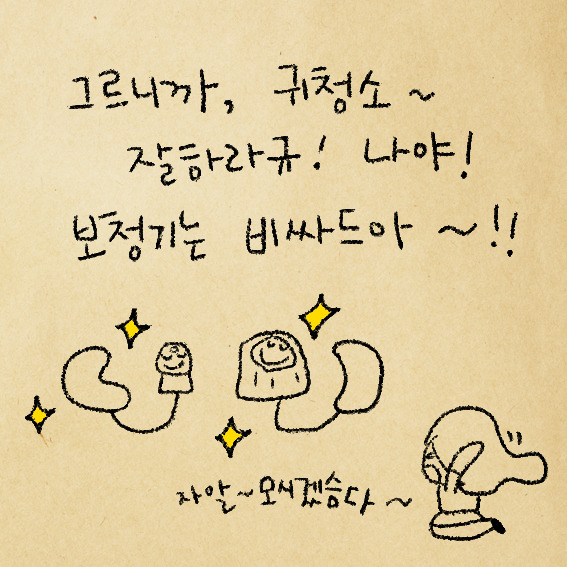 그르니까, 귀청소~
잘하라규! 나야!
보청기는 비싸드아~!!
자알~모시겠습다~